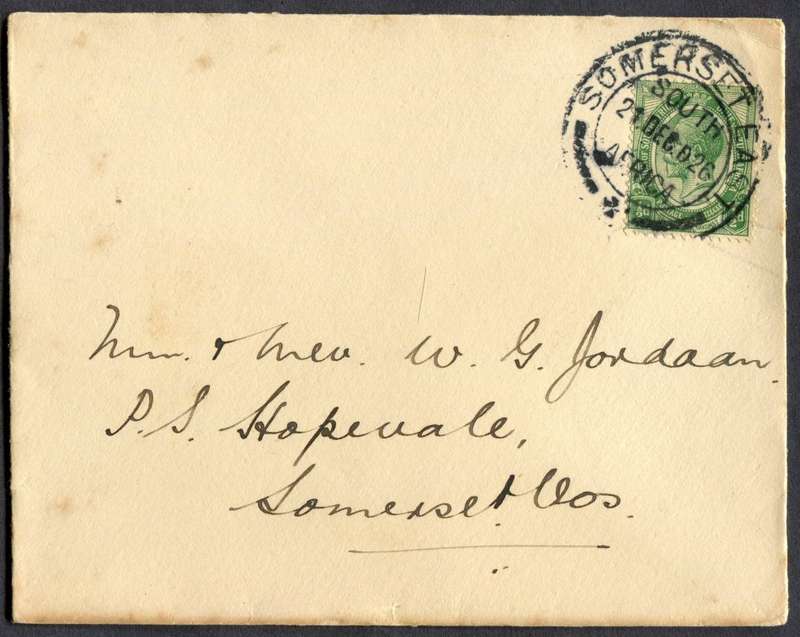 SOMERSET EAST
SOUTH
21 DEC 26
AFRICA
Mnr. & Mev. W. G. Jordaan.
P.S. Hopevale,
Somerset Oos.